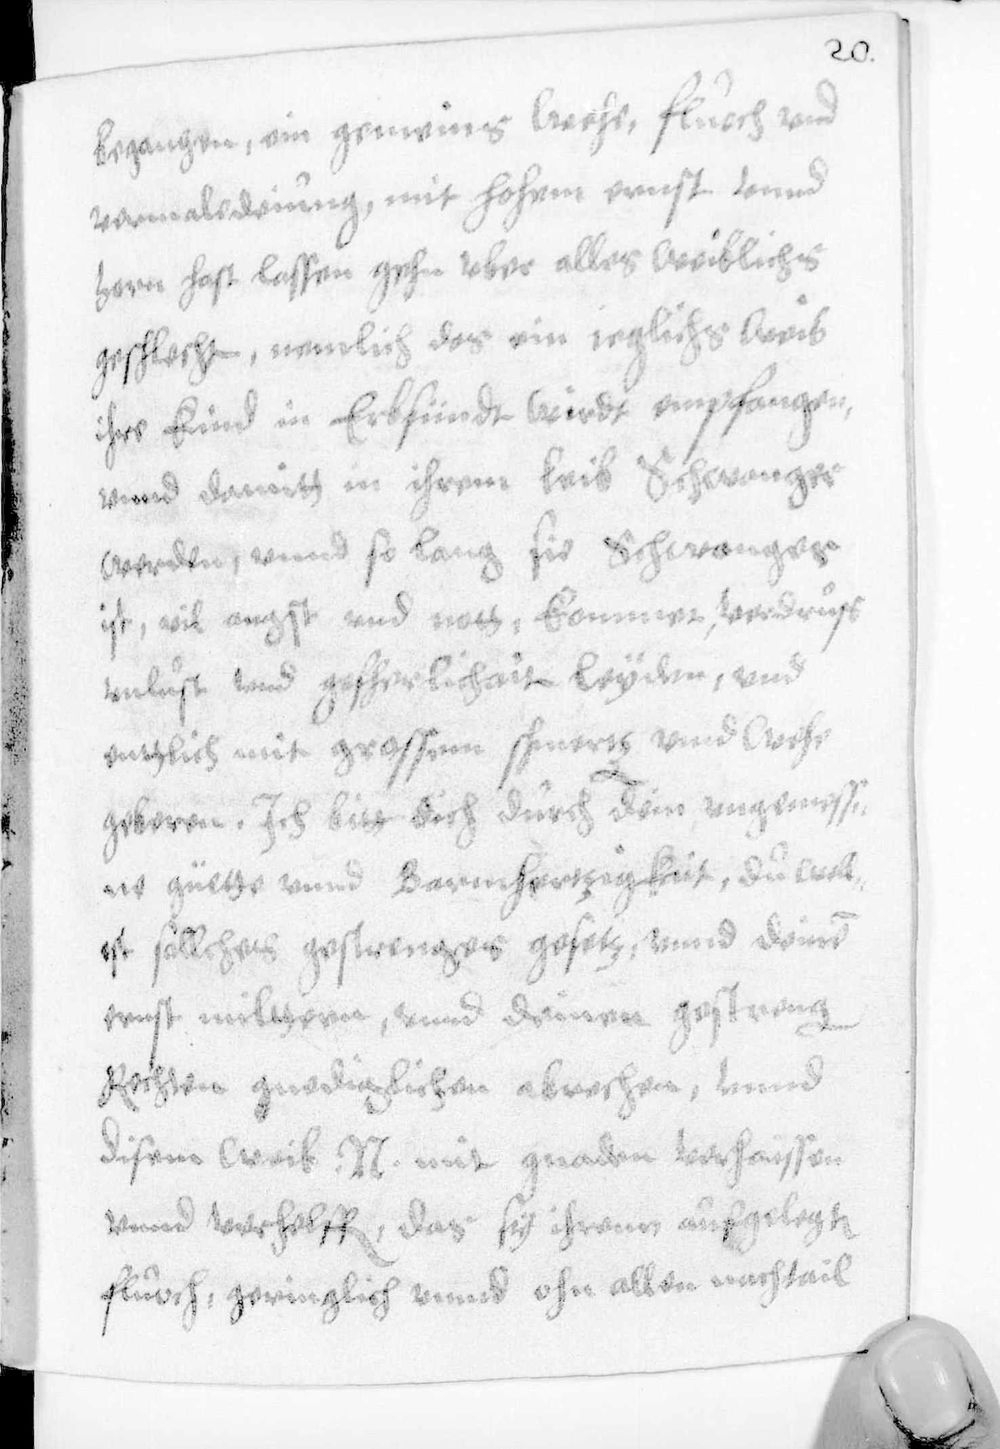 20.
begangen, ein gemeines Wehe, fluoch vnd
vermaledeiung, mit hohem ernst vnnd
zorn hast lassen gehn vber alles Weiblichs
geschlecht, nemlich das ein ieglichs Weib
ihre Kind in Erbsündt Würdt empfangen,
vnnd damitt in ihrem leib Schwanger
Werden, vnnd so lang sie Schwanger
ist, vil angst vnd nott, Kommer, Verdruss
vnlust vnd gefherlichait leyden, vnd
entlich mit grossem schmertz vnnd Wehe
geberen. Ich bitt dich durch dein vngemessi-
ne güette vnnd Barmhertzigkeit, du Woll-
est sollches gestrenges gesetz, vnnd deinē
ernst miltern, vnnd deinen gestreng
Rechten gnediglichen abrechen, vnnd
disem Weib .N. mit gnaden verhaissen
vnnd verhelff, das sy ihrem aufgelegt
fluoch, geringlich vnnd ohn allen nachtail